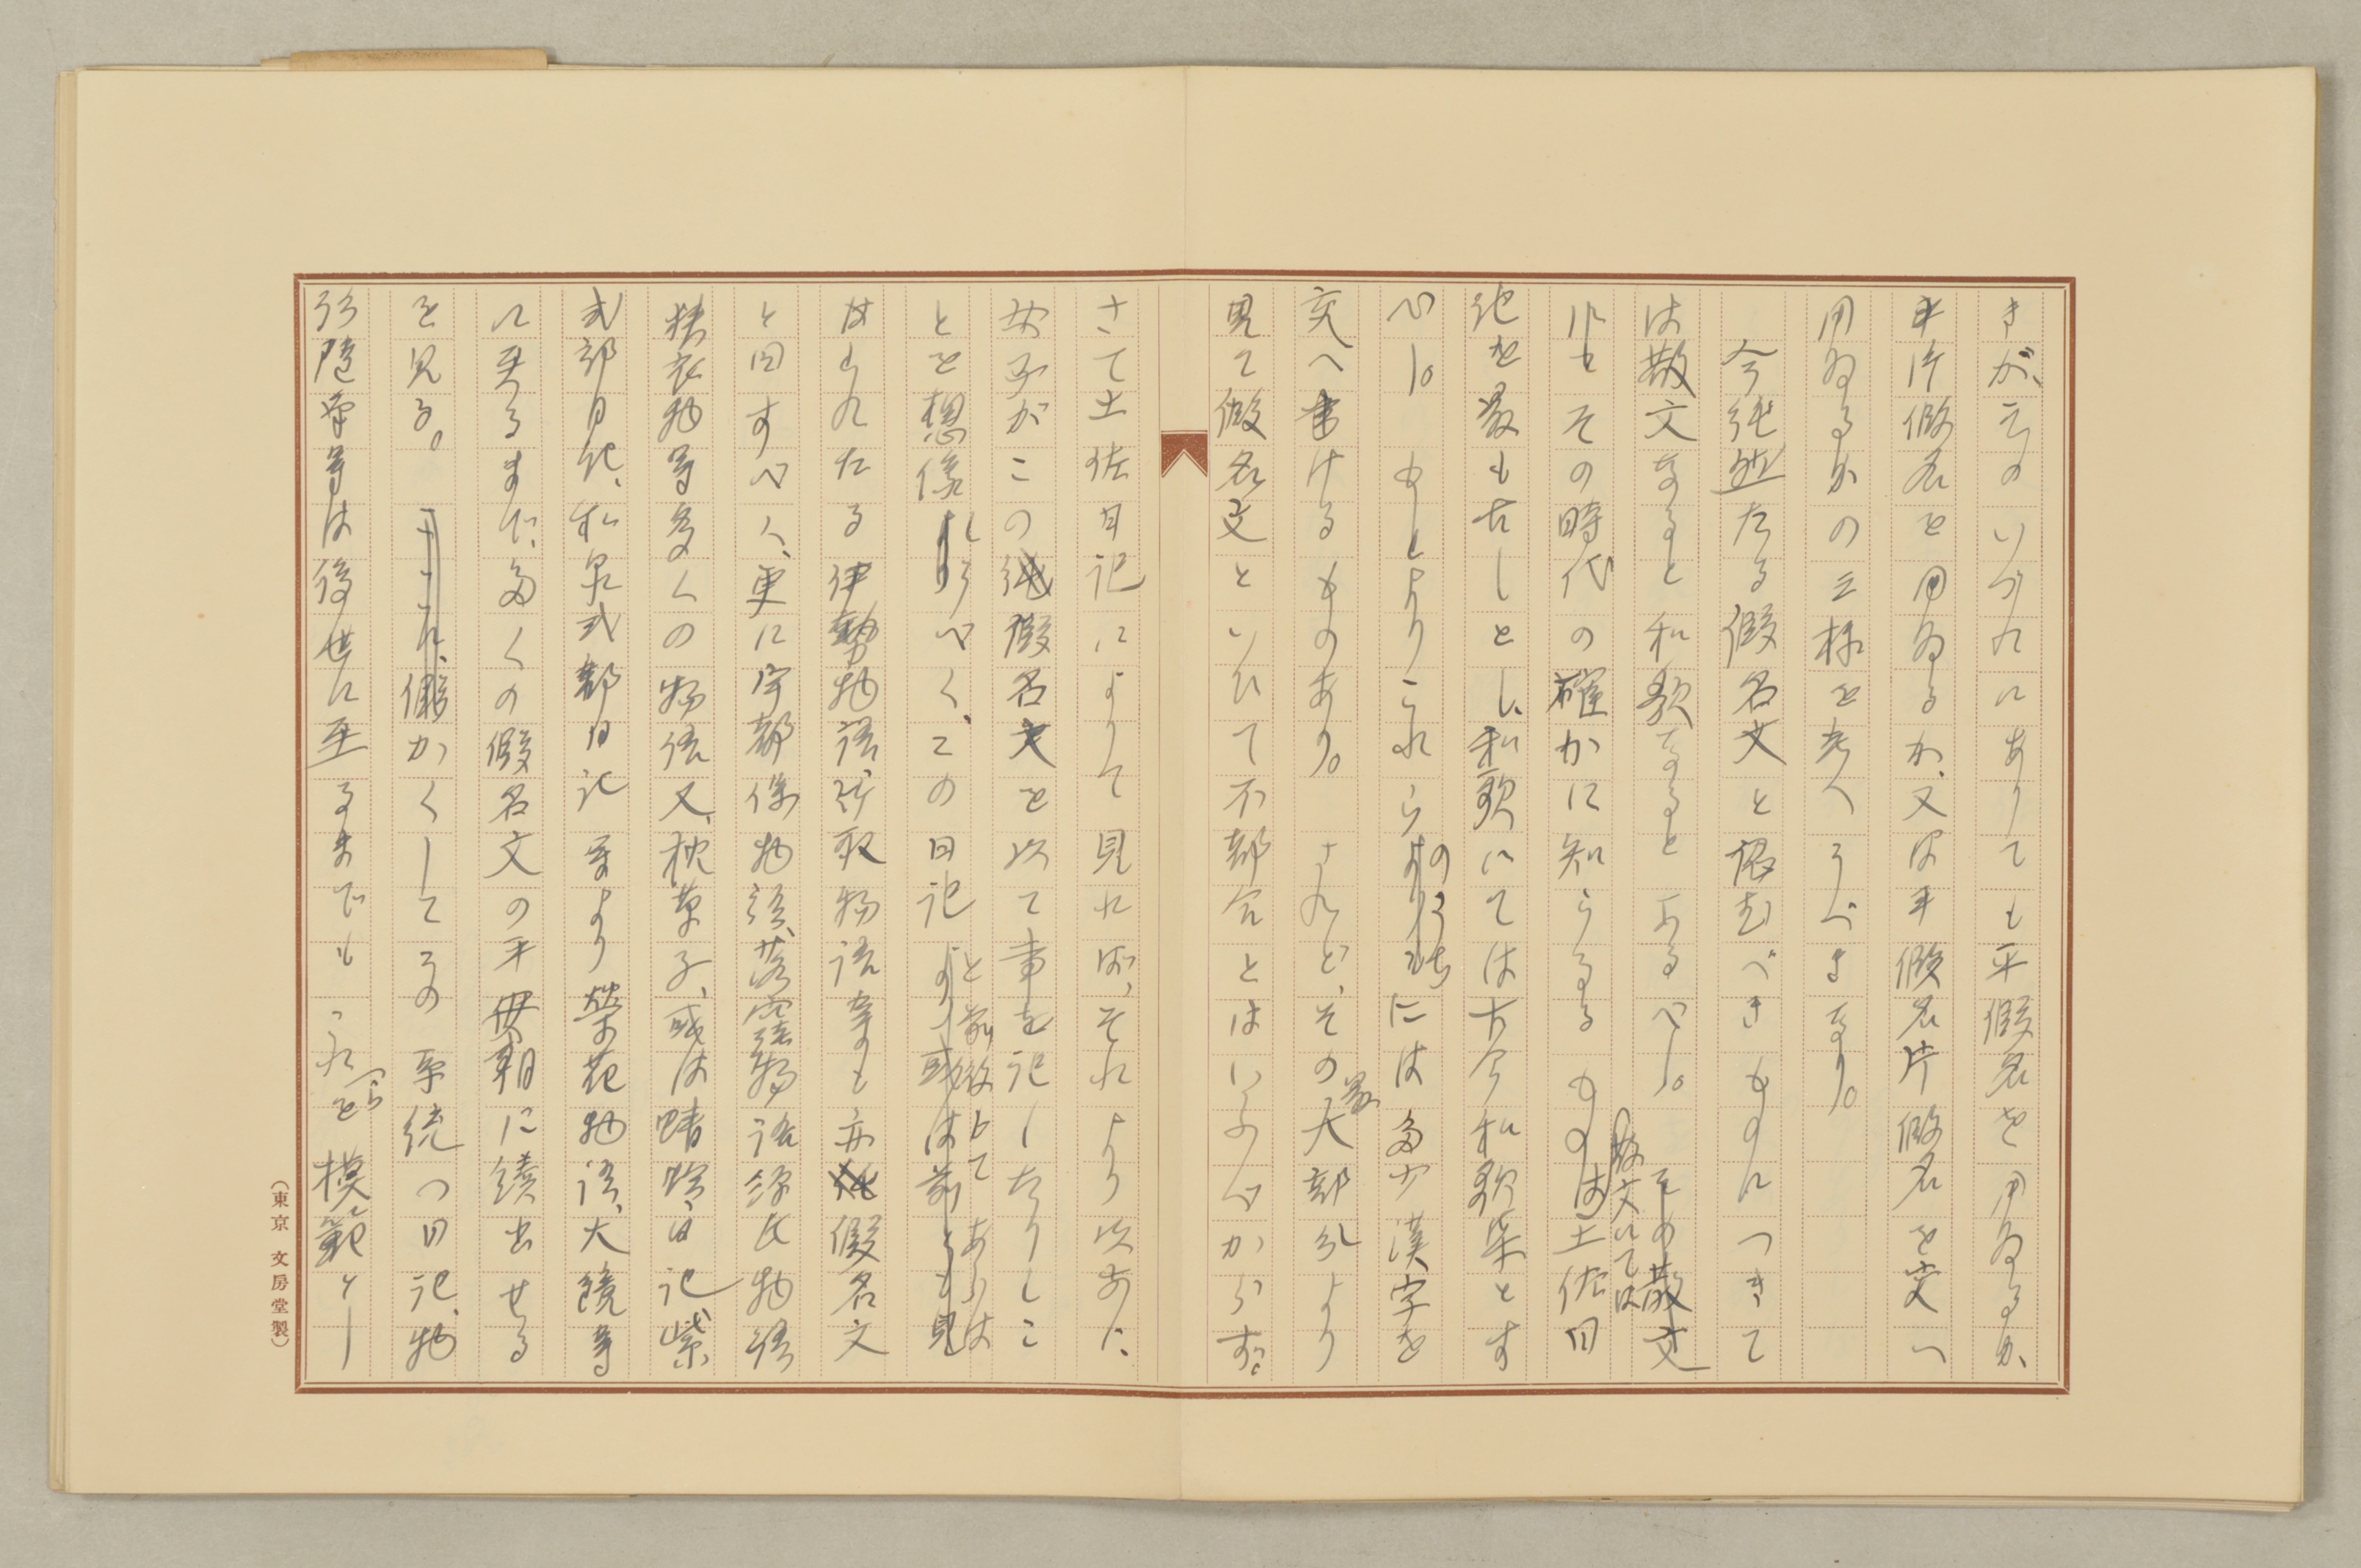 きが、そのいづれにありても平假名を用ゐるか、
片假名を用ゐるか、又は平假名片假名を交へ
用ゐるかの三様を考へうべきなり。
今純然たる假名文と認むべきものにつきて
は散文なると和歌なるとあるべし。その散文
散文にては
にてその時代の確かに知らるるものは土佐日
記を最も古しとし、和歌にては古今和歌集とす
べし。もとよりこれらのうちには多少漢字を
交へ書けるものあり。されど、その最大部分より
見て假名文といひて不都合とはいふべからず。
さて土佐日記によりて見れば、それより以前に
女子がこの假名文を以て事を記したりしこ
とを想像しうべく、この日記と前後して あらは
或は前とも見
はれたる伊勢物語、竹取物語等も亦假名文
と目すべく、更に宇都保物語、落窪物語源氏物語
狭衣物等多くの物語又、枕草子、或は蜻蛉日記紫
式部日記、和泉式部日記等より榮花物語、大鏡等
に至るまで、多くの假名文の平安朝に續出せる
を見る。かくしてその系統の日記、物
語随筆等は後世に至るまでもこれらを模範とし
(東京 文房堂製)